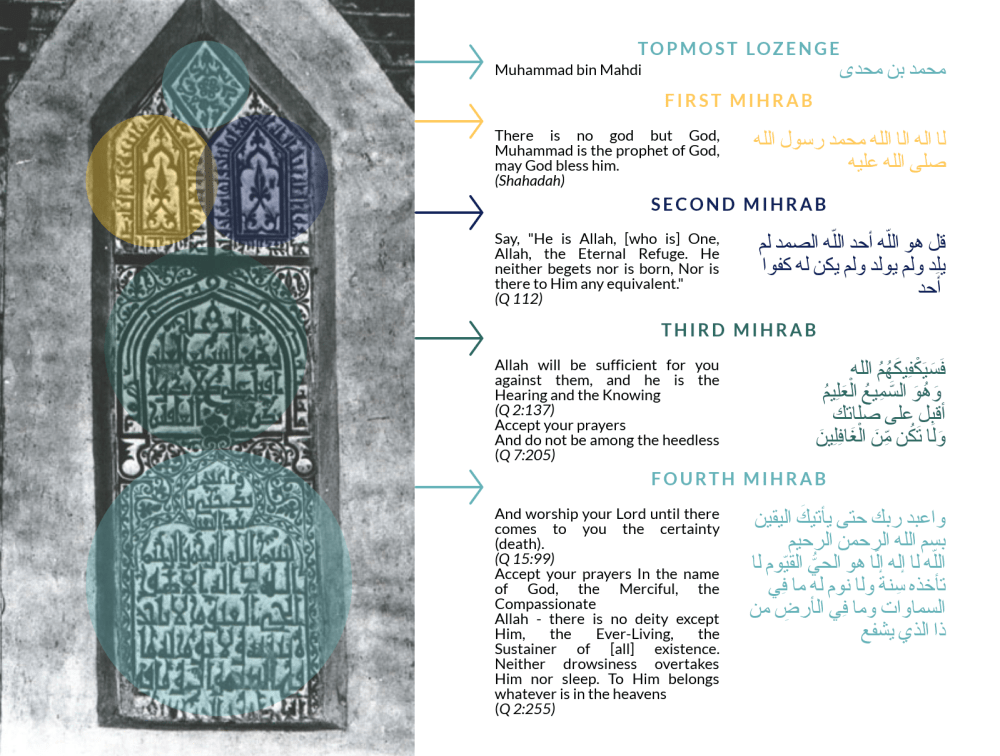 TOPMOST LOZENGE
Muhammad bin Mahdi
محمد بن محدى
FIRST MIHRAB
There is no god but God,
Muhammad is the prophet of God,
may God bless him.
(Shahadah)
لا اله الا الله محمد رسول الله
صلى الله عليه
SECOND MIHRAB
Say, "He is Allah, [who is] One,
Allah, the Eternal Refuge. He
neither begets nor is born, Nor is
there to Him any equivalent."
(Q 112)
قل هو اللّه أحد اللّه الصمد لم
يلد ولم يولد ولم يكن له كفوا
أحد
THIRD MIHRAB
Allah will be sufficient for you
against them, and he is the
Hearing and the Knowing
(Q 2:137)
Accept your prayers
And do not be among the heedless
(Q 7:205)
فَسَيَكْفِيكَهُمُ الله
وَهُوَ السَّمِيعُ الْعَلِيمُ
أقبل على صلاتك
وَلَا تَكُن مِّنَ الْغَافِلِينَ
FOURTH MIHRAB
And worship your Lord until there
comes to you the certainty
(death).
(Q 15:99)
Accept your prayers In the name
of God, the Merciful, the
Compassionate
Allah - there is no deity except
Him, the Ever-Living, the
Sustainer of [all] existence.
Neither drowsiness overtakes
Him nor sleep. To Him belongs
whatever is in the heavens
(Q 2:255)
واعبد ربك حتى يأتيكَ اليقين
بسم الله الرحمن الرحيم
اللّه لا إله إلّا هو الحيُّ القيّوم لا
تأخذه سِنةٌ ولا نوم له ما في
السماوات وما في الأرضِ من
ذا الذي يشفع